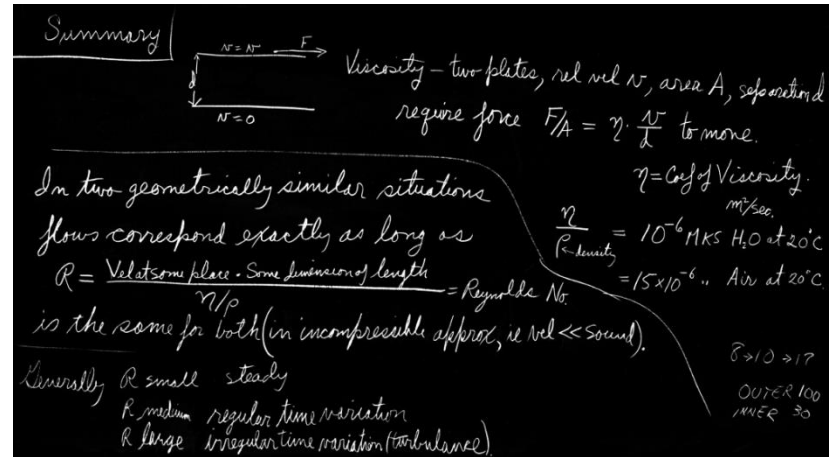 Summary
v = v F
d
v = 0
Viscosity – two plates, rel vel v, area A, separation d
require force F/A = η · v/d to move.
η = Coef of Viscosity.
m²/sec.
η/ρ ← density = 10⁻⁶ MKS H₂O at 20°C
= 15×10⁻⁶ " Air at 20°C.
In two geometrically similar situations
flows correspond exactly as long as
R = Vel at some place · Some dimension of length / η/ρ = Reynolds No.
is the same for both (in incompressible approx, ie vel << sound).
Generally R small steady
R medium regular time variation
R large irregular time variation (turbulance)
8→10→17
OUTER 100
INNER 30